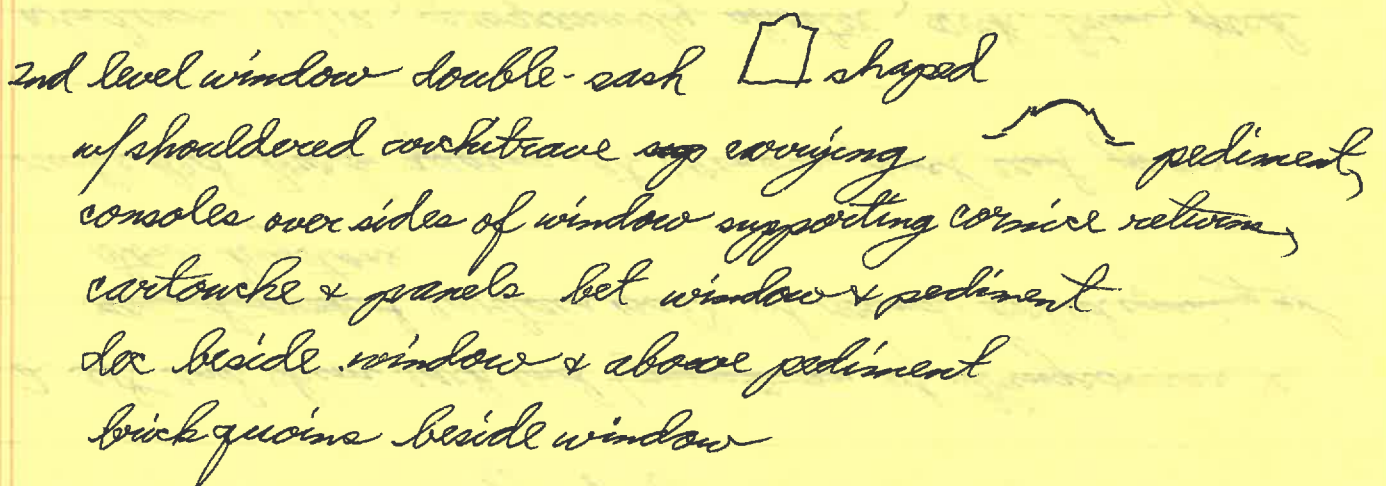 2nd level window double-sash shaped
w/ shouldered architrave carrying pediment,
consoles over sides of window supporting cornice returns,
cartouche & panels bet window & pediment
dec beside window & above pediment
brick quoins beside window